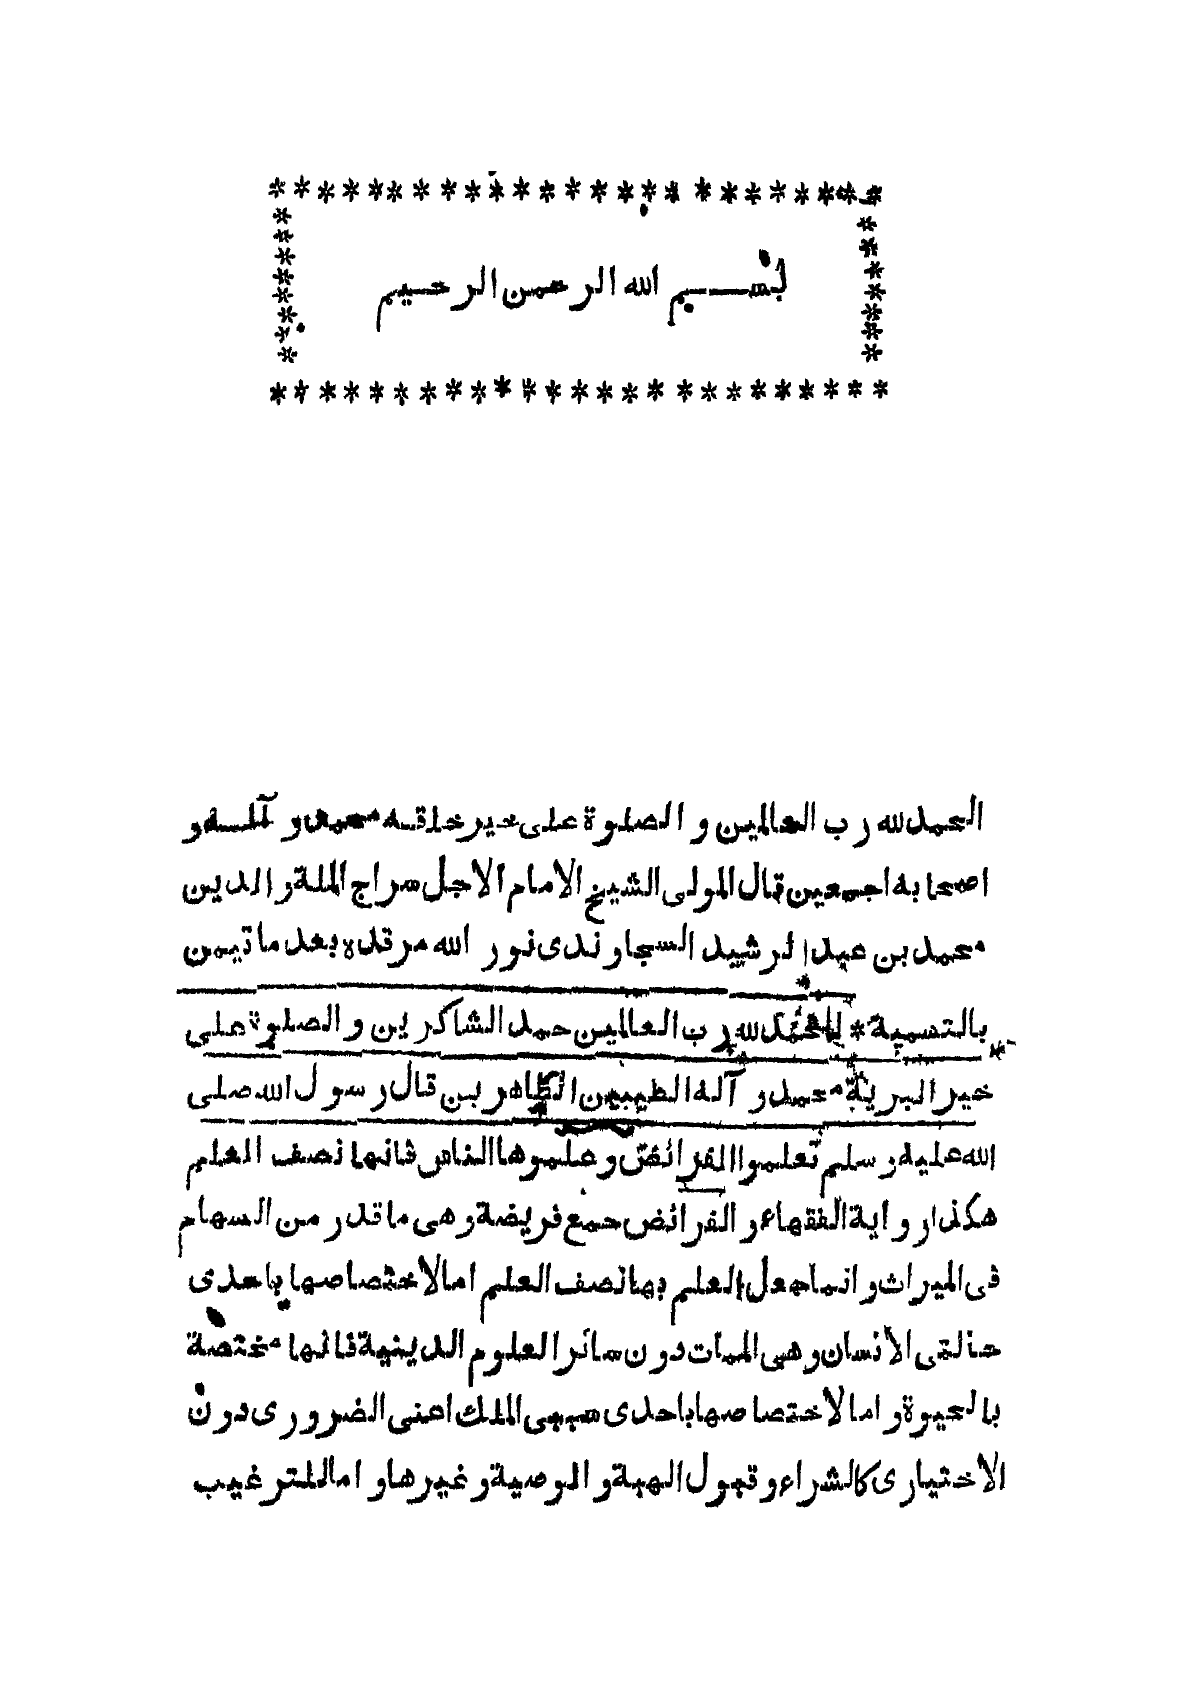 بســم الله الرحمن الرحيم
الحمدلله رب العالمين و الصلوة على خير خلقه محمد و آلــه و
اصحابه اجمعين قال المولى الشيخ الامام الاجل سراج الملة و الدين
محمد بن عبد الرشيد السجاوندى نور الله مرقده بعد ما تيمن
بالتسمية * الحمدلله رب العالمين حمد الشاكرين و الصلوة على
خير البرية محمد و آله الطيبين الطاهرين قال رسول الله صلى
الله عليه و سلم تعلموا الفرائض و علموها الناس فانها نصف العلم
هكذا رواية الفقهاء و الفرائض جمع فريضة و هى ما قدر من السهام
فى الميراث و انما جعل العلم بها نصف العلم اما لاختصاصها باحدى
حالتى الانسان و هى الممات دون سائر العلوم الدينية فانها مختصة
بالحيوة و اما لاختصاصها باحدى سببى الملك اعنى الضرورى دون
الاختيارى كالشراء و قبول الهبة و الوصية و غيرها و اما للترغيب